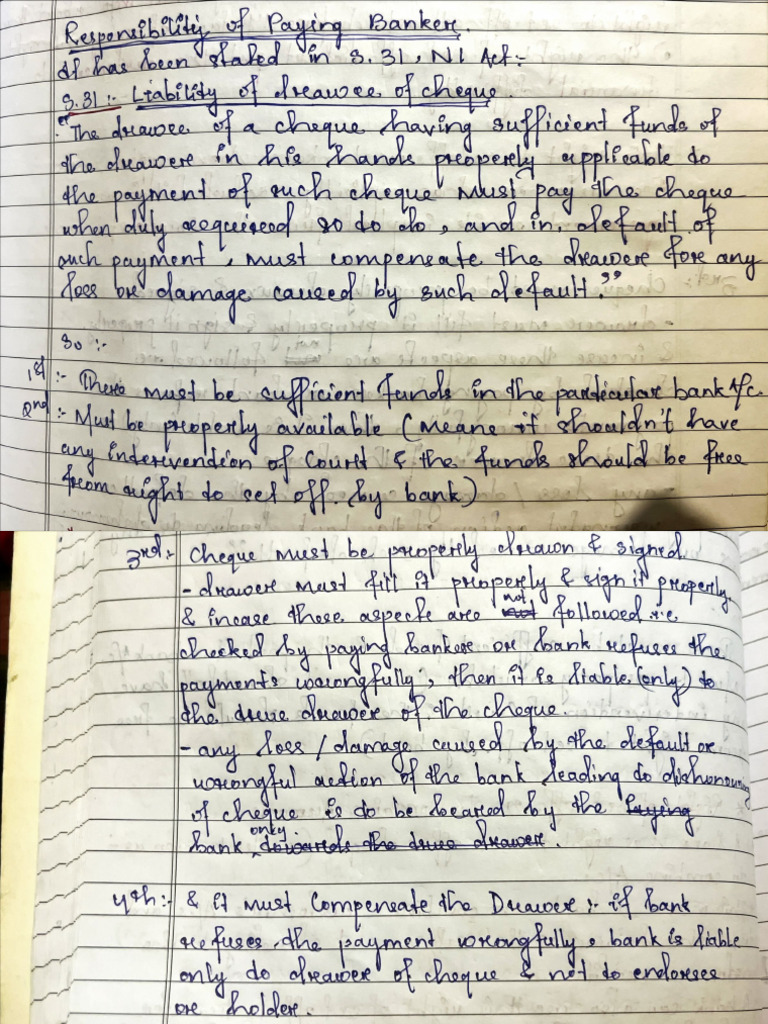 Responsibility of Paying Banker.
It has been stated in S.31, NI Act:-
S.31:- Liability of drawee of cheque.
"The drawee of a cheque having sufficient funds of
the drawer in his hands properly applicable to
the payment of such cheque must pay the cheque
when duly required so to do, and in default of
such payment, must compensate the drawer for any
loss or damage caused by such default."
So :-
1st :- There must be sufficient funds in the particular bank A/c.
2nd :- Must be properly available (Means it shouldn't have
any intervention of Court & the funds should be free
from right to set off. (by bank)
3rd:- Cheque must be properly drawn & signed
- drawer must fill it properly & sign it properly.
& incase these aspects are not followed i.e
checked by paying banker or bank refuses the
payments wrongfully, then it is liable (only) to
the true drawer of the cheque.
- any loss / damage caused by the default or
wrongful action of the bank leading to dishonouring
of cheque is to be beared by the paying
bank only towards the true drawer.
4th:- & it must Compensate the Drawer :- if bank
refuses the payment wrongfully, bank is liable
only to drawer of cheque & not to endorsee
or holder.